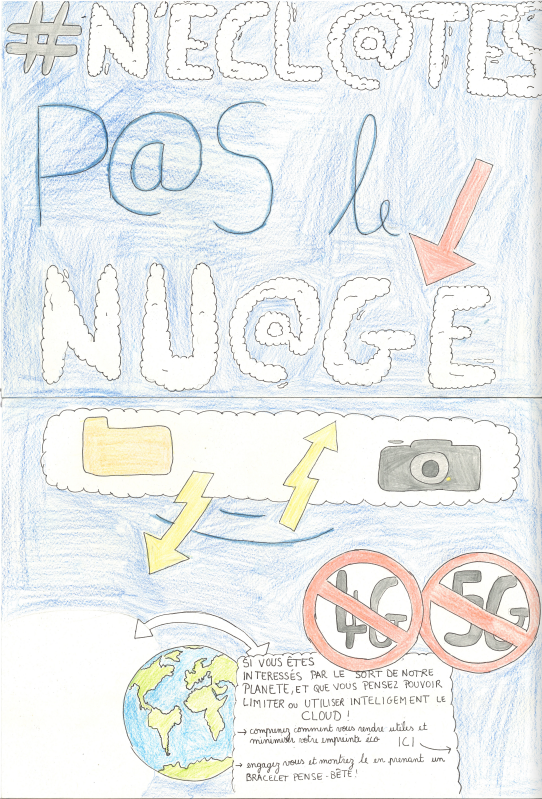 #N'ECL@TES
P@S le
NU@GE
4G 5G
SI VOUS ÊTES
INTERESSÉS PAR LE SORT DE NOTRE
PLANETE, ET QUE VOUS PENSEZ POUVOIR
LIMITER OU UTILISER INTELIGEMENT LE
CLOUD !
→ comprenez comment vous rendre utiles et
minimiser votre empreinte éco ICI
→ engagez vous et montrez le en prenant un
BRACELET PENSE-BÊTE!